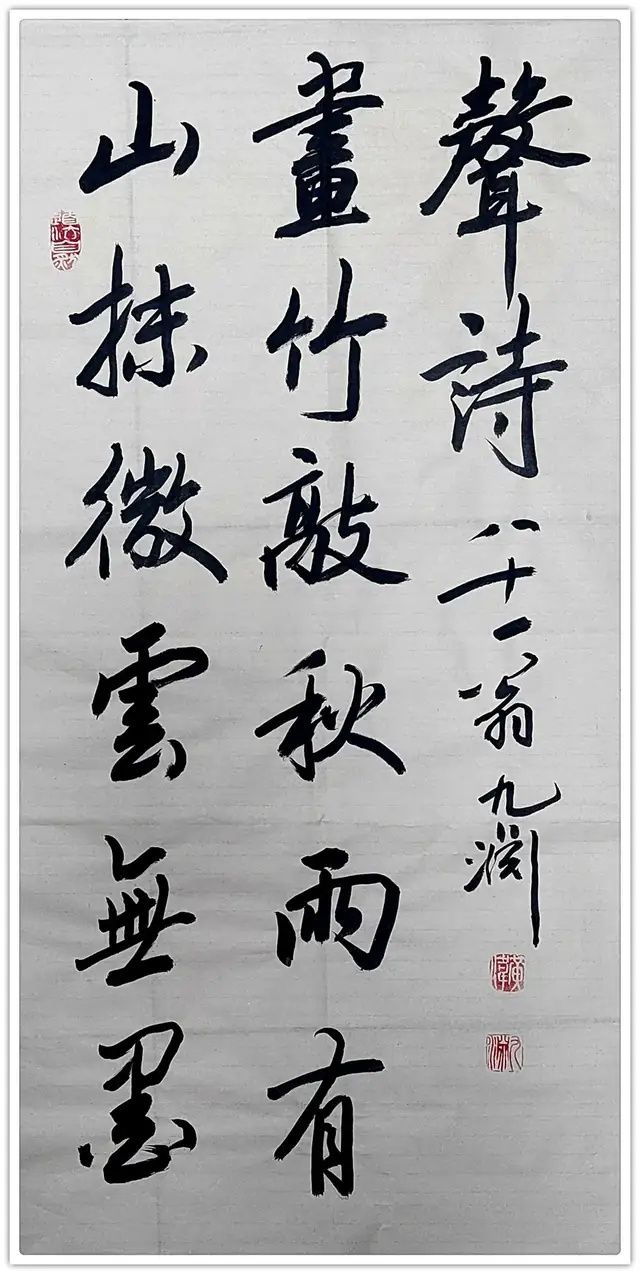 山抹微雲無墨
畫竹敲秋雨有
聲詩
八十一翁九渊